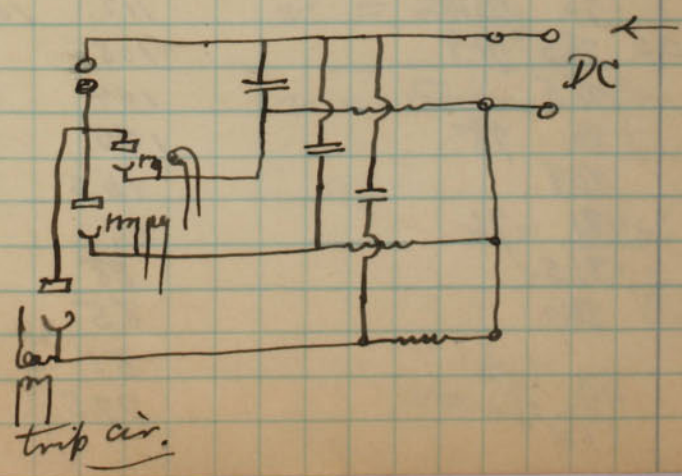 DC
trip cir.